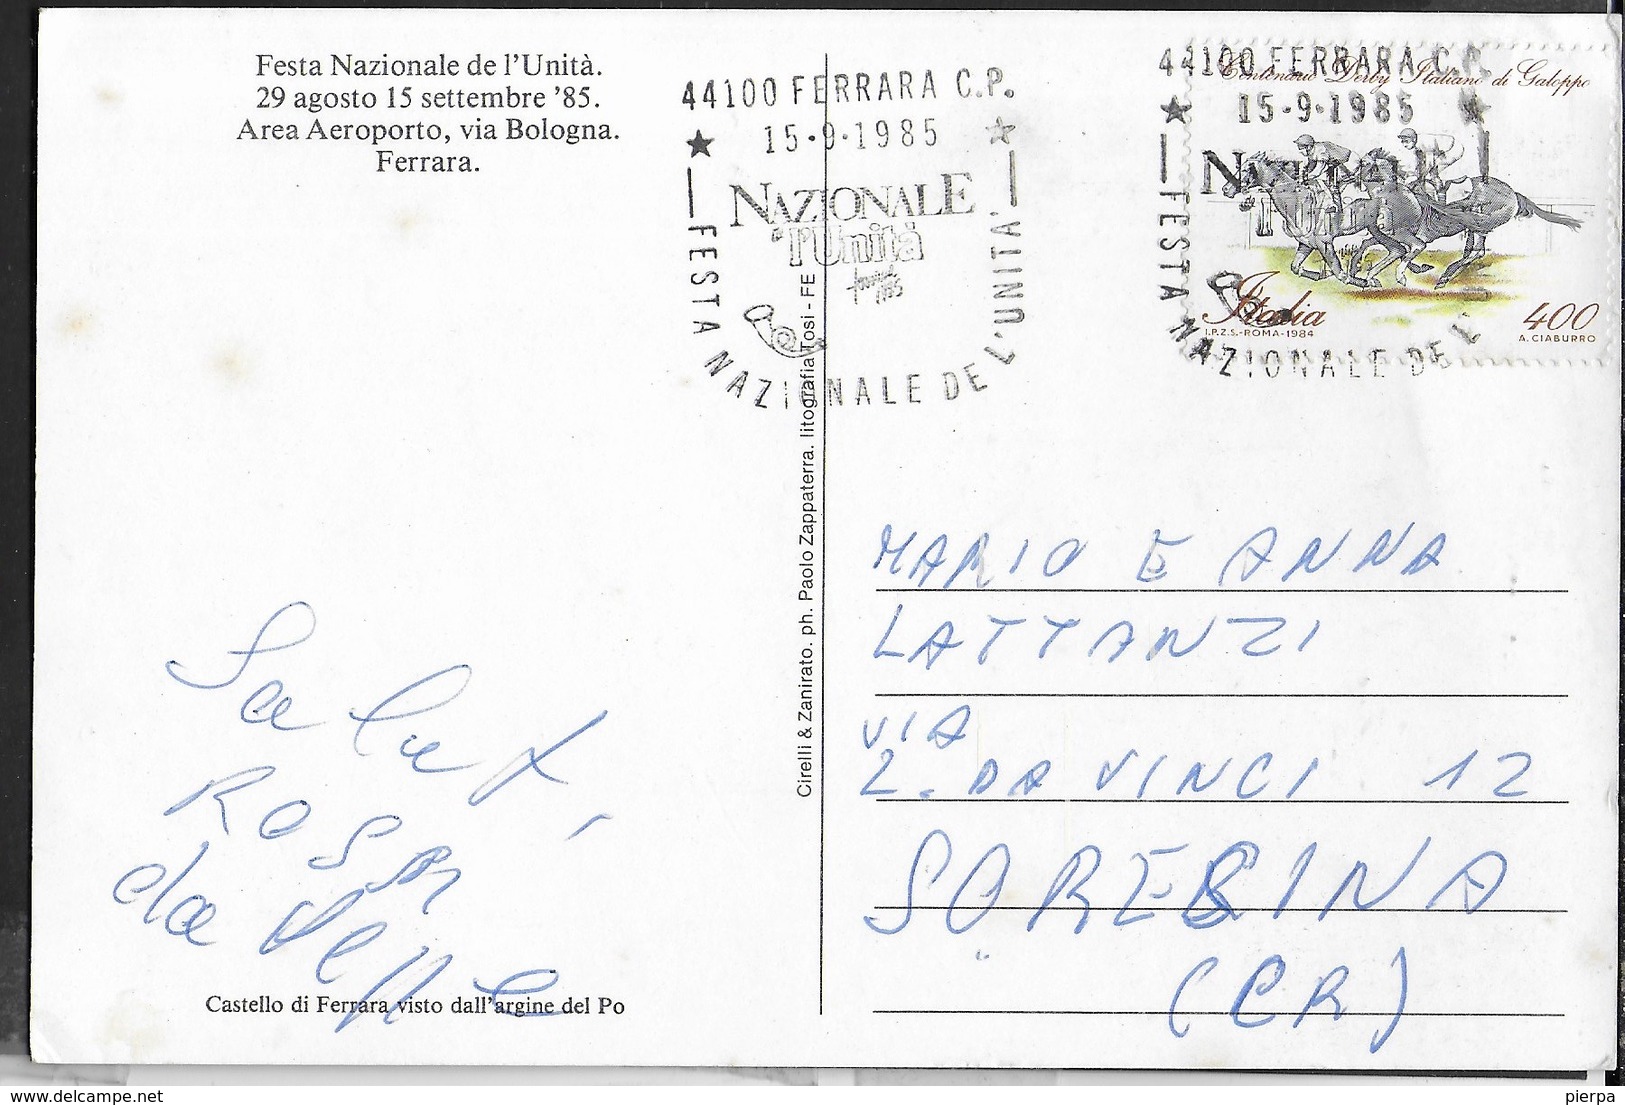 Festa Nazionale de l'Unità.
29 agosto 15 settembre '85.
Area Aeroporto, via Bologna.
Ferrara.
44100 FERRARA C.P.
15-9-1985
NAZIONALE
l'Unità
FESTA NAZIONALE DE L'UNITÀ
44100 FERRARA C.P.
15-9-1985
NAZIONALE
l'Unità
FESTA NAZIONALE DE L'
Centenario Derby Italiano di Galoppo
Italia
400
I.P.Z.S.-ROMA-1984
A. CIABURRO
Cirelli & Zanirato. ph. Paolo Zappaterra. litografia Tosi - FE
MARIO E ANNA
LATTANZI
VIA
L. DA VINCI 12
SORESINA
(CR)
Saluti
da
Castello di Ferrara visto dall'argine del Po
delcampe.net
pierpa